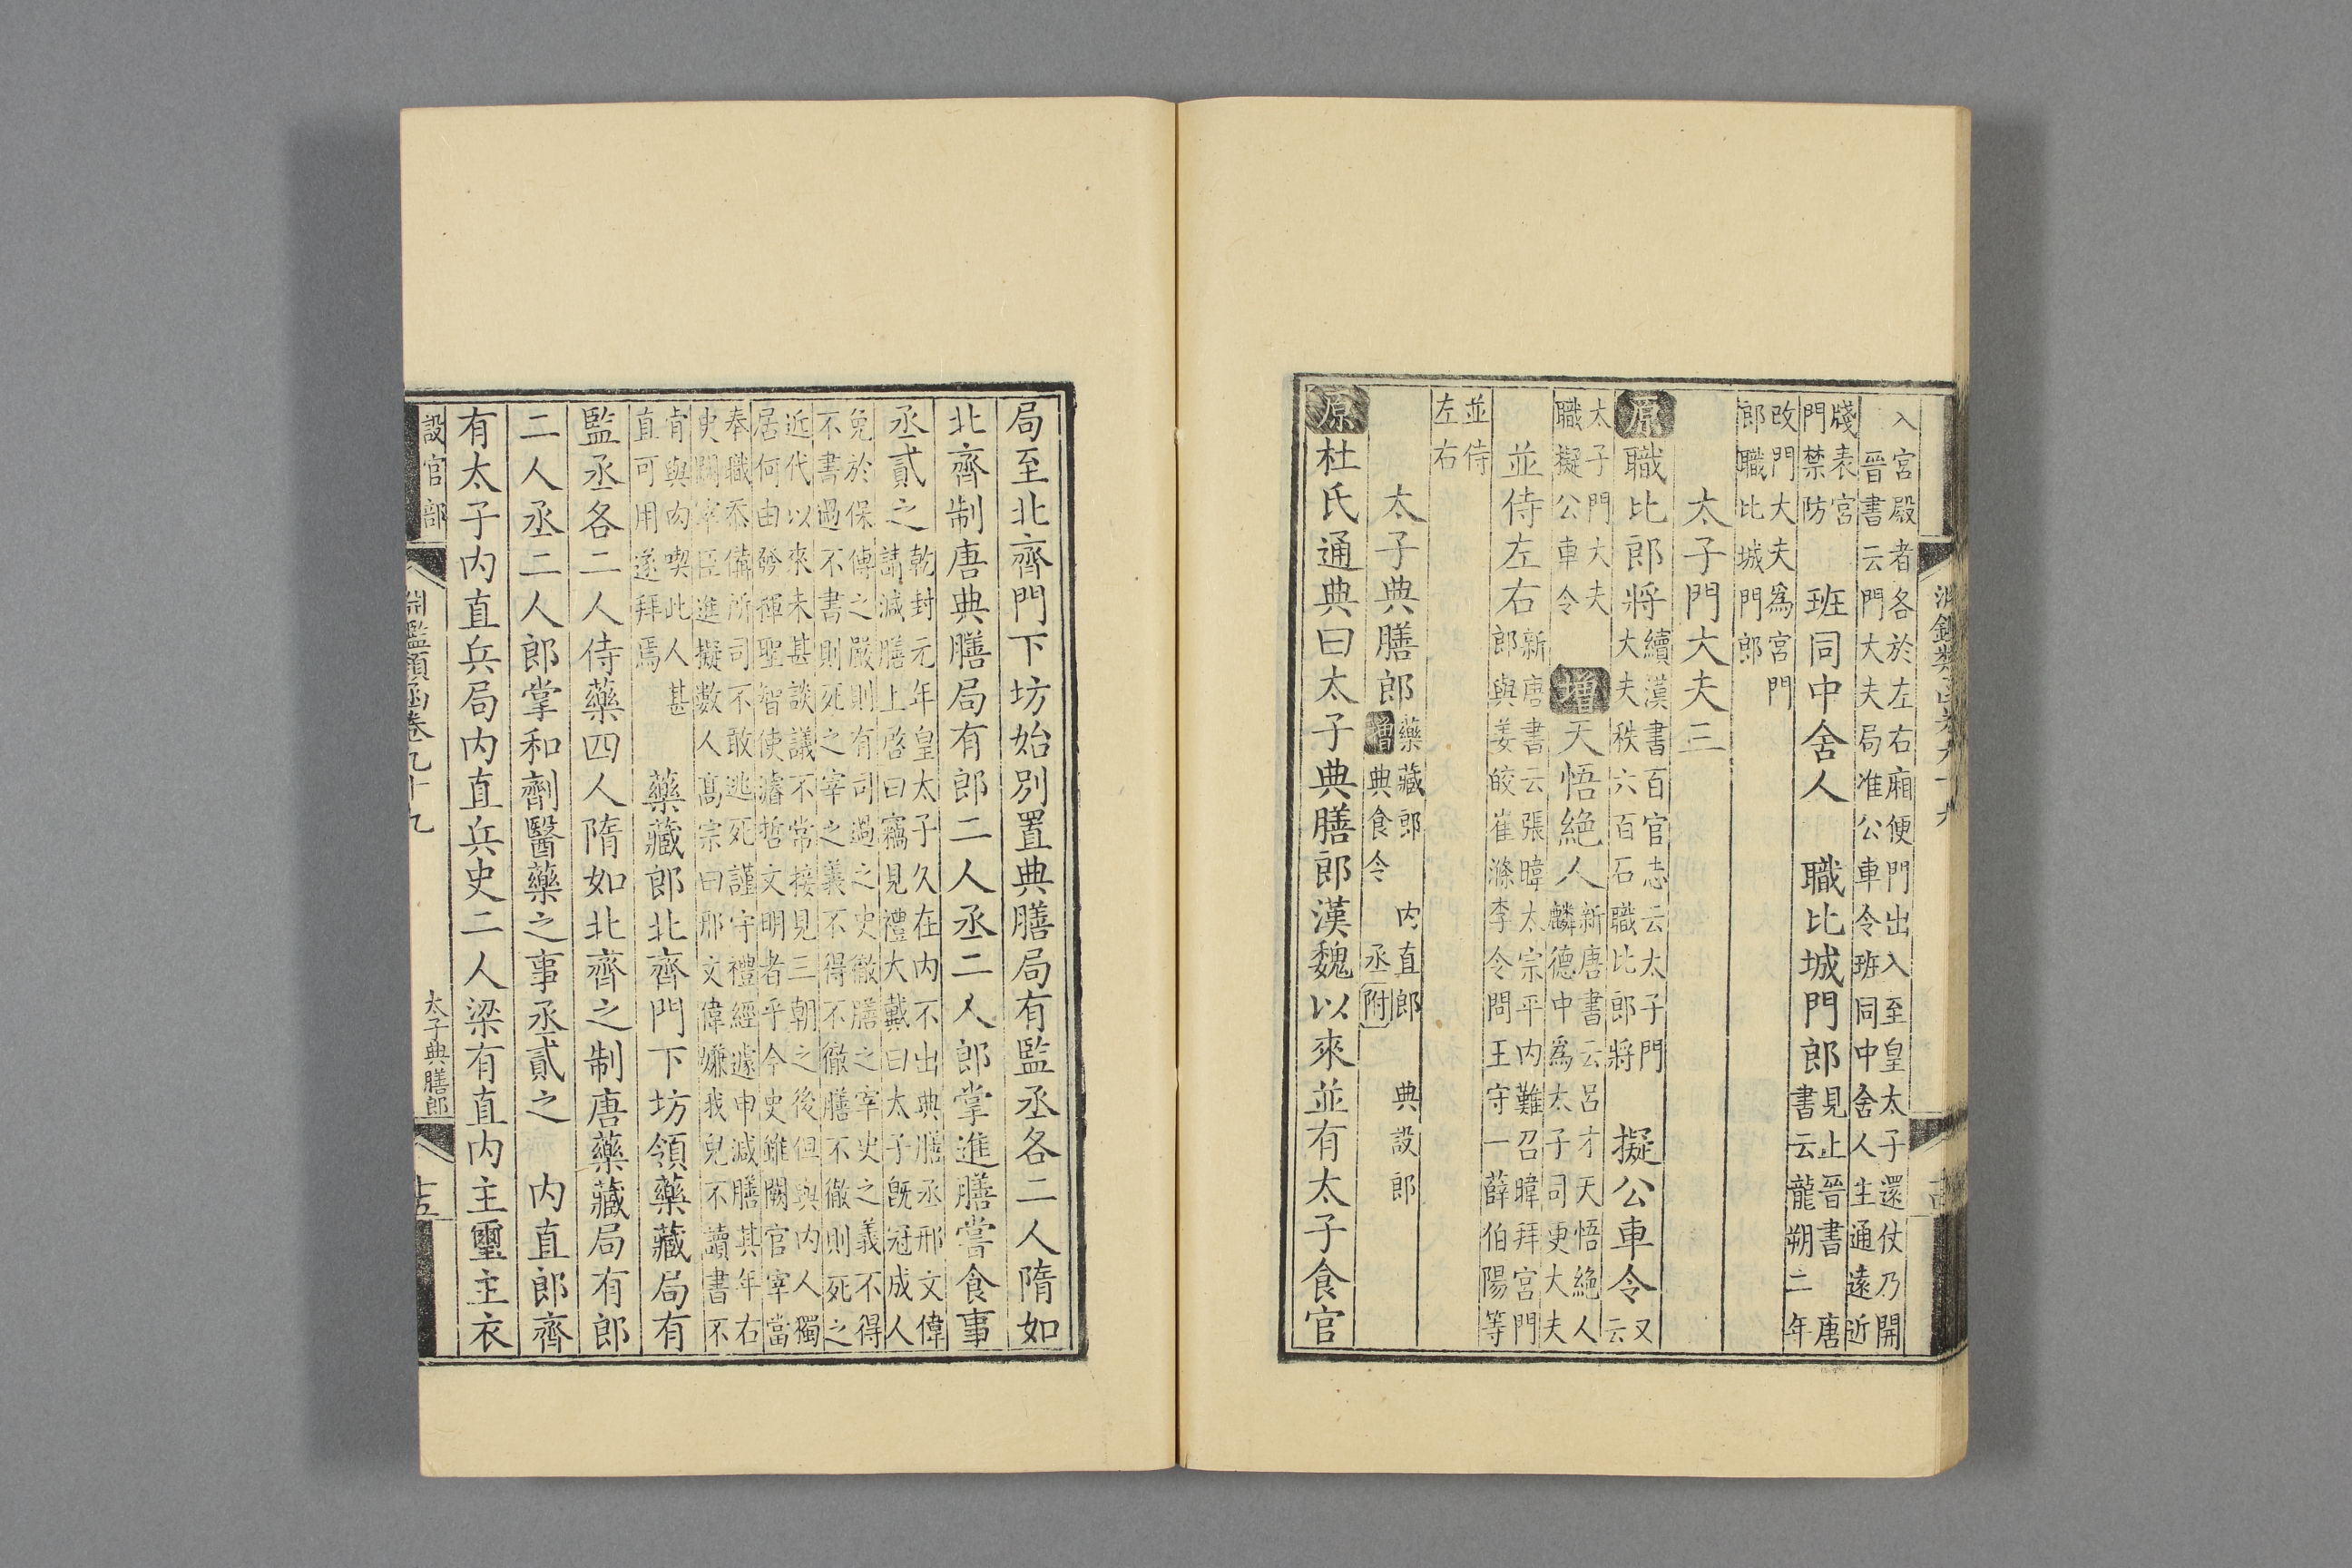 淵鑑類函卷九十九
入宮殿者各於左右廂便門出入至皇太子還仗乃開
晉書云門大夫局准公車令班同中舍人主通遠近
牋表宮門禁防 班同中舍人 職比城門郎 見止晉書 唐書云龍朔二年
改門大夫為宮門
郎職比城門郎
太子門大夫三
原 職比郎將 續漢書百官志云太子門大夫秩六百石職比郎將 擬公車令 又云
太子門大夫職擬公車令 增 天悟絕人 新唐書云呂才天悟絕人麟德中為太子司更大夫
並侍左右 新唐書云張暐太宗平内難召暐拜宮門郎與姜皎崔滌李令問王守一薛伯陽等
並侍
左右
太子典膳郎 藥藏郎 内直郎 典設郎 增 典食令 丞附
原 杜氏通典曰太子典膳郎漢魏以來並有太子食官
局至北齊門下坊始別置典膳局有監丞各二人隋如
北齊制唐典膳局有郎二人丞二人郎掌進膳嘗食事
丞貳之 乾封元年皇太子久在内不出典膳丞邢文偉請減膳上啓曰竊見禮大戴曰太子旣冠成人
免於保傅之嚴則有司過之史徹膳之宰史之義不得
不書過不書則死之宰之義不得不徹膳不徹則死之
近代以來未甚談議不常接見三朝之後但與内人獨
居何由發揮聖智使濬哲文明者乎今史雖闕官宰當
奉職忝備所司不敢逃死謹守禮經遽申減膳其年右
史闕宰臣進擬數人高宗曰邢文偉嫌我兒不讀書不
肯與肉喫此人甚直可用遂拜焉 藥藏郎北齊門下坊領藥藏局有
監丞各二人侍藥四人隋如北齊之制唐藥藏局有郎
二人丞二人郎掌和劑醫藥之事丞貳之 内直郎齊
有太子内直兵局内直兵史二人梁有直内主璽主衣
設官部
淵鑑類函卷九十九
太子典膳郎
十五